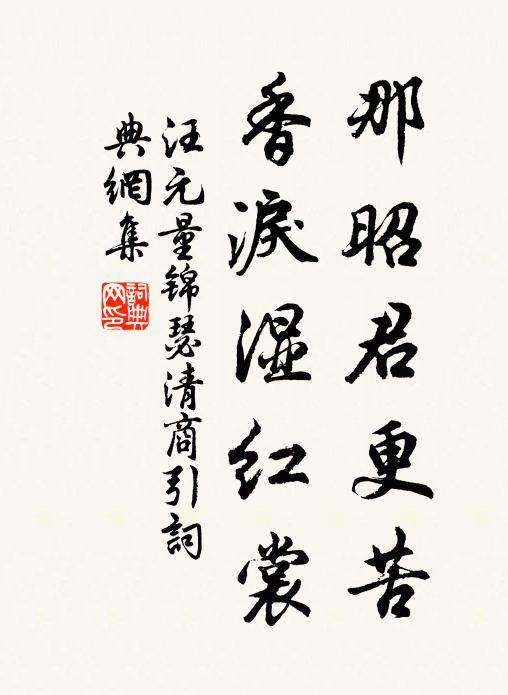 那昭君更苦
香淚湿紅裳
汪元量錦瑟清商引詞
典網集
詞典网印